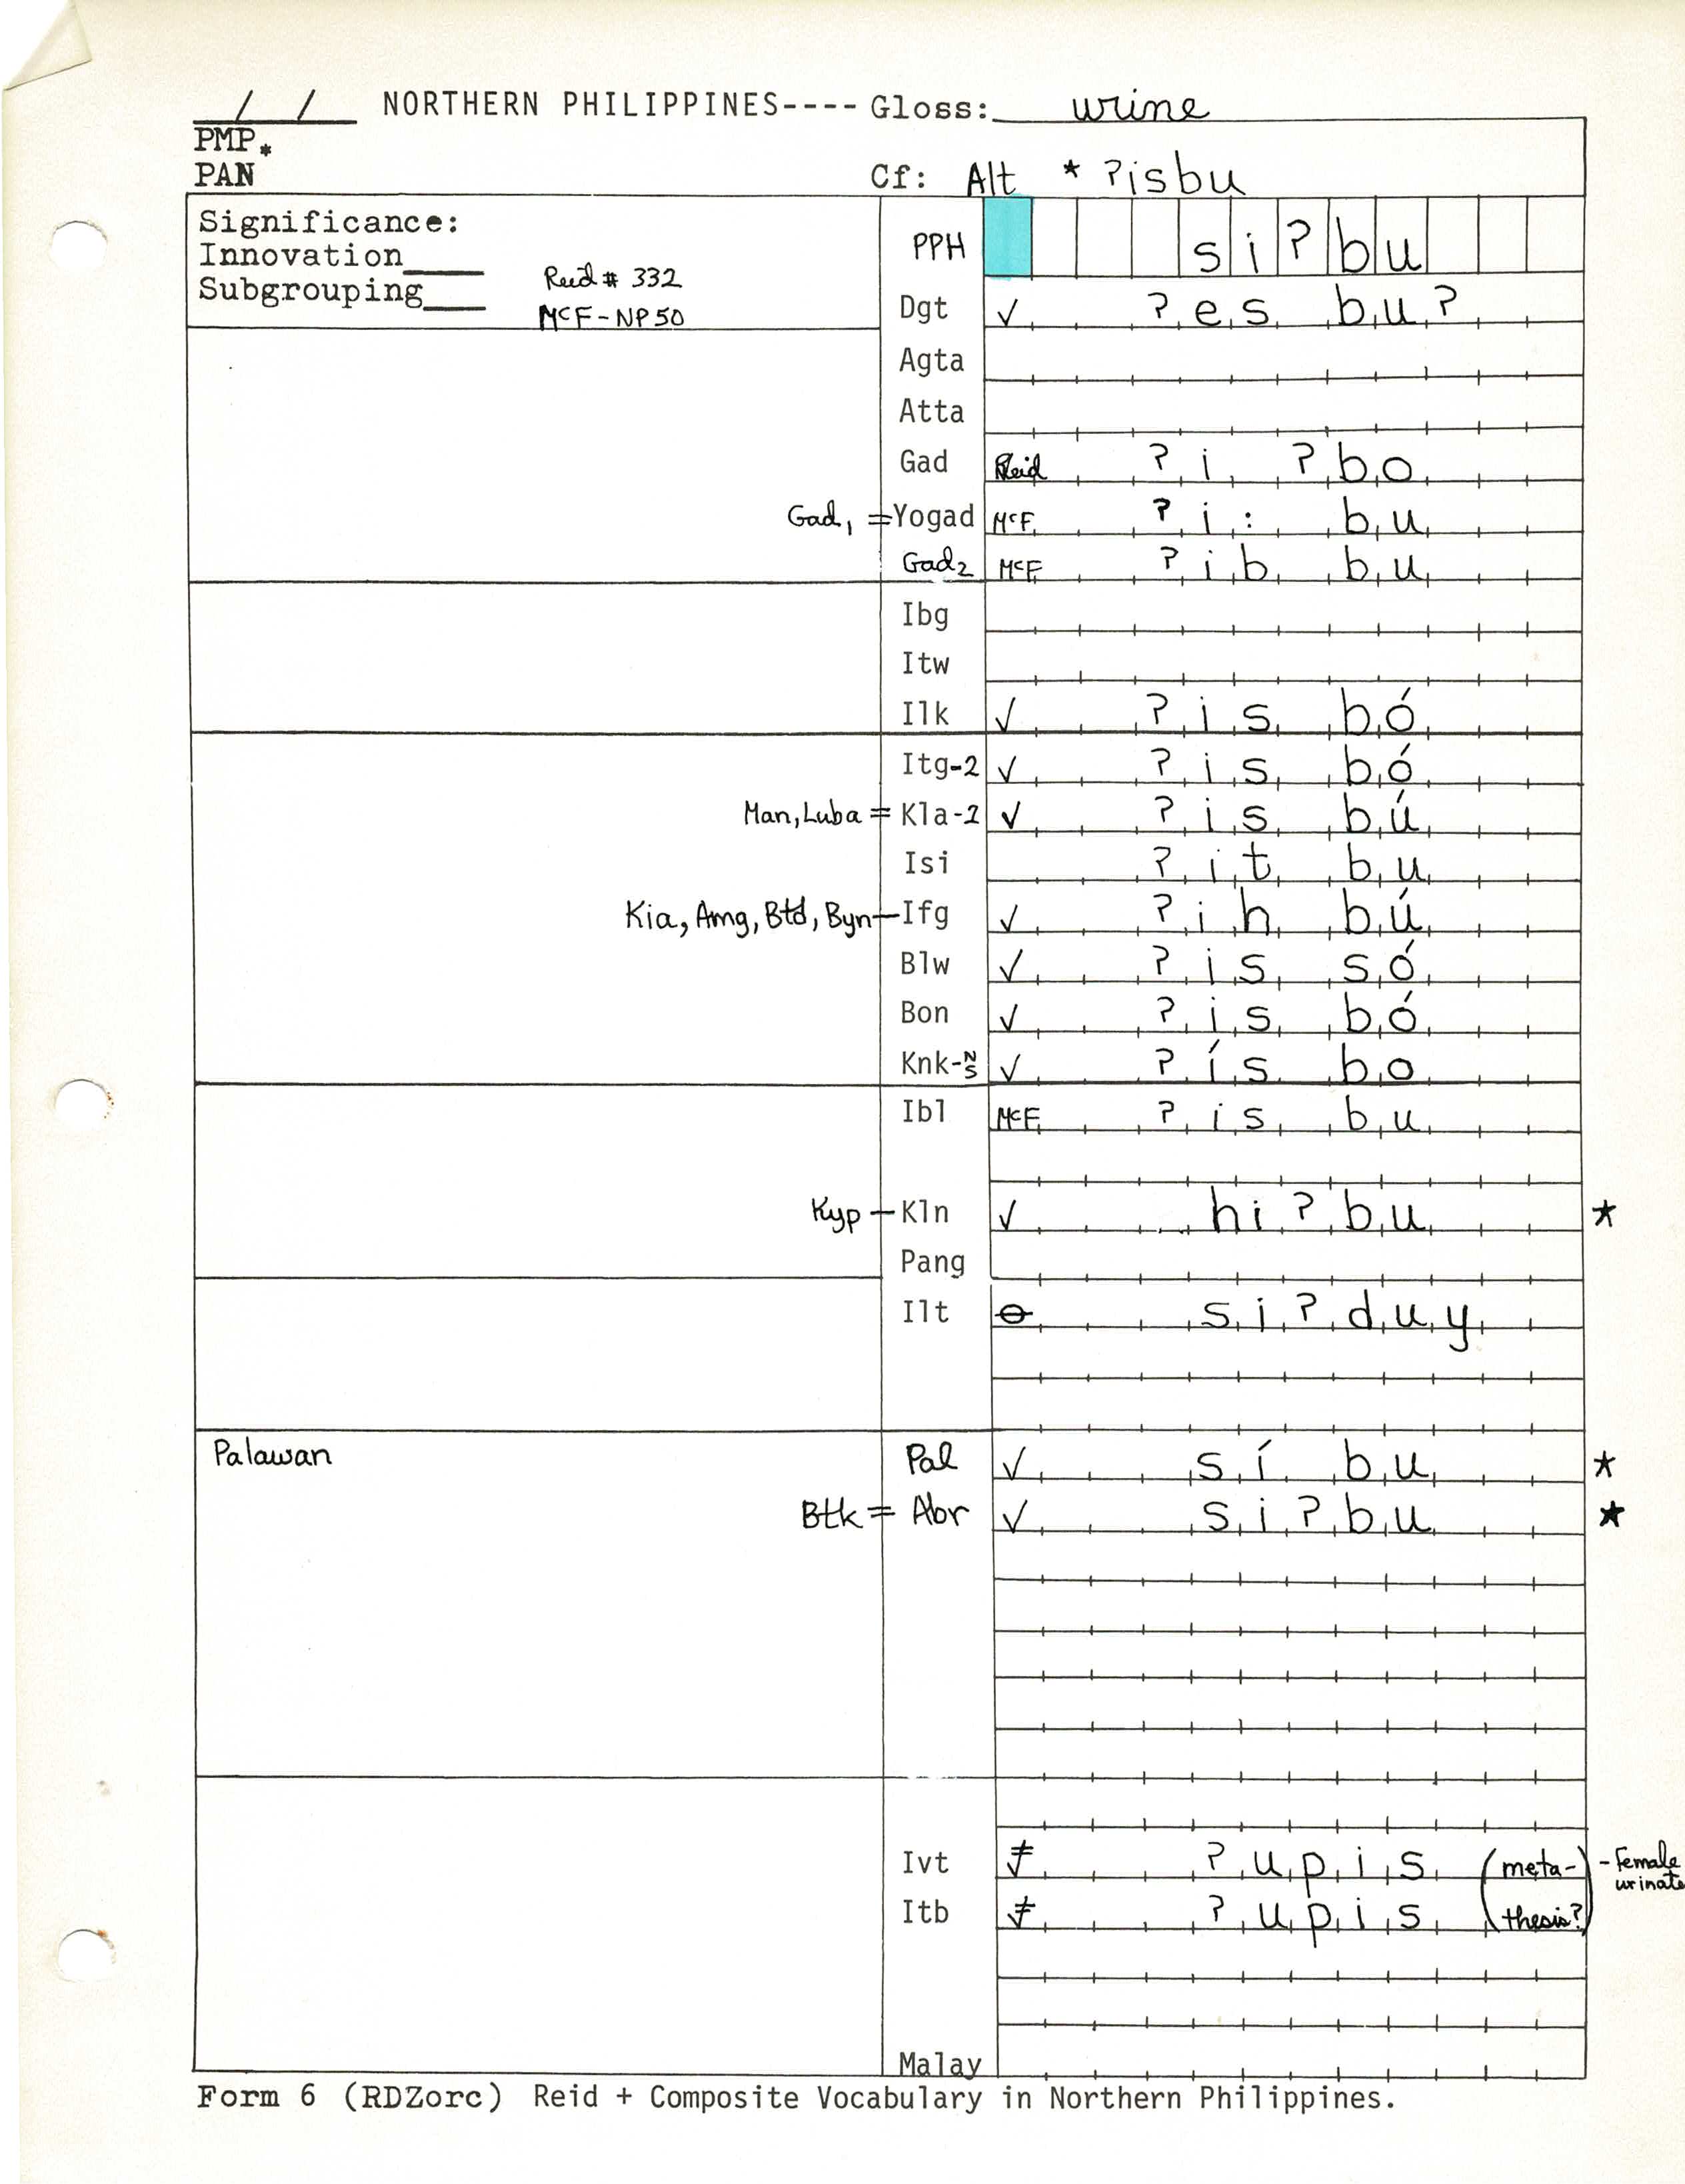 / / NORTHERN PHILIPPINES---- Gloss: urine
PMP*
PAN Cf: Alt * ʔisbu
Significance:
Innovation____
Subgrouping____
Reid # 332
McF-NP50
PPH siʔbu
Dgt ✓ ʔesbuʔ
Agta
Atta
Gad Reid ʔiʔbo
Gad₁ = Yogad McF ʔi:bu
Gad₂ McF ʔibbu
Ibg
Itw
Ilk ✓ ʔisbó
Itg-2 ✓ ʔisbó
Man, Luba = Kla-1 ✓ ʔisbú
Isi ʔitbu
Kia, Amg, Btd, Byn — Ifg ✓ ʔihbú
Blw ✓ ʔissó
Bon ✓ ʔisbó
Knk-N S ✓ ʔísbo
Ibl McF ʔisbu
Kyp — Kln ✓ hiʔbu ★
Pang
Ilt ɵ siʔduy
Palawan
Pal ✓ síbu ★
Btk = Abr ✓ siʔbu ★
Ivt ≠ ʔupis (meta- - Female urinate
Itb ≠ ʔupis thesis?)
Malay
Form 6 (RDZorc) Reid + Composite Vocabulary in Northern Philippines.